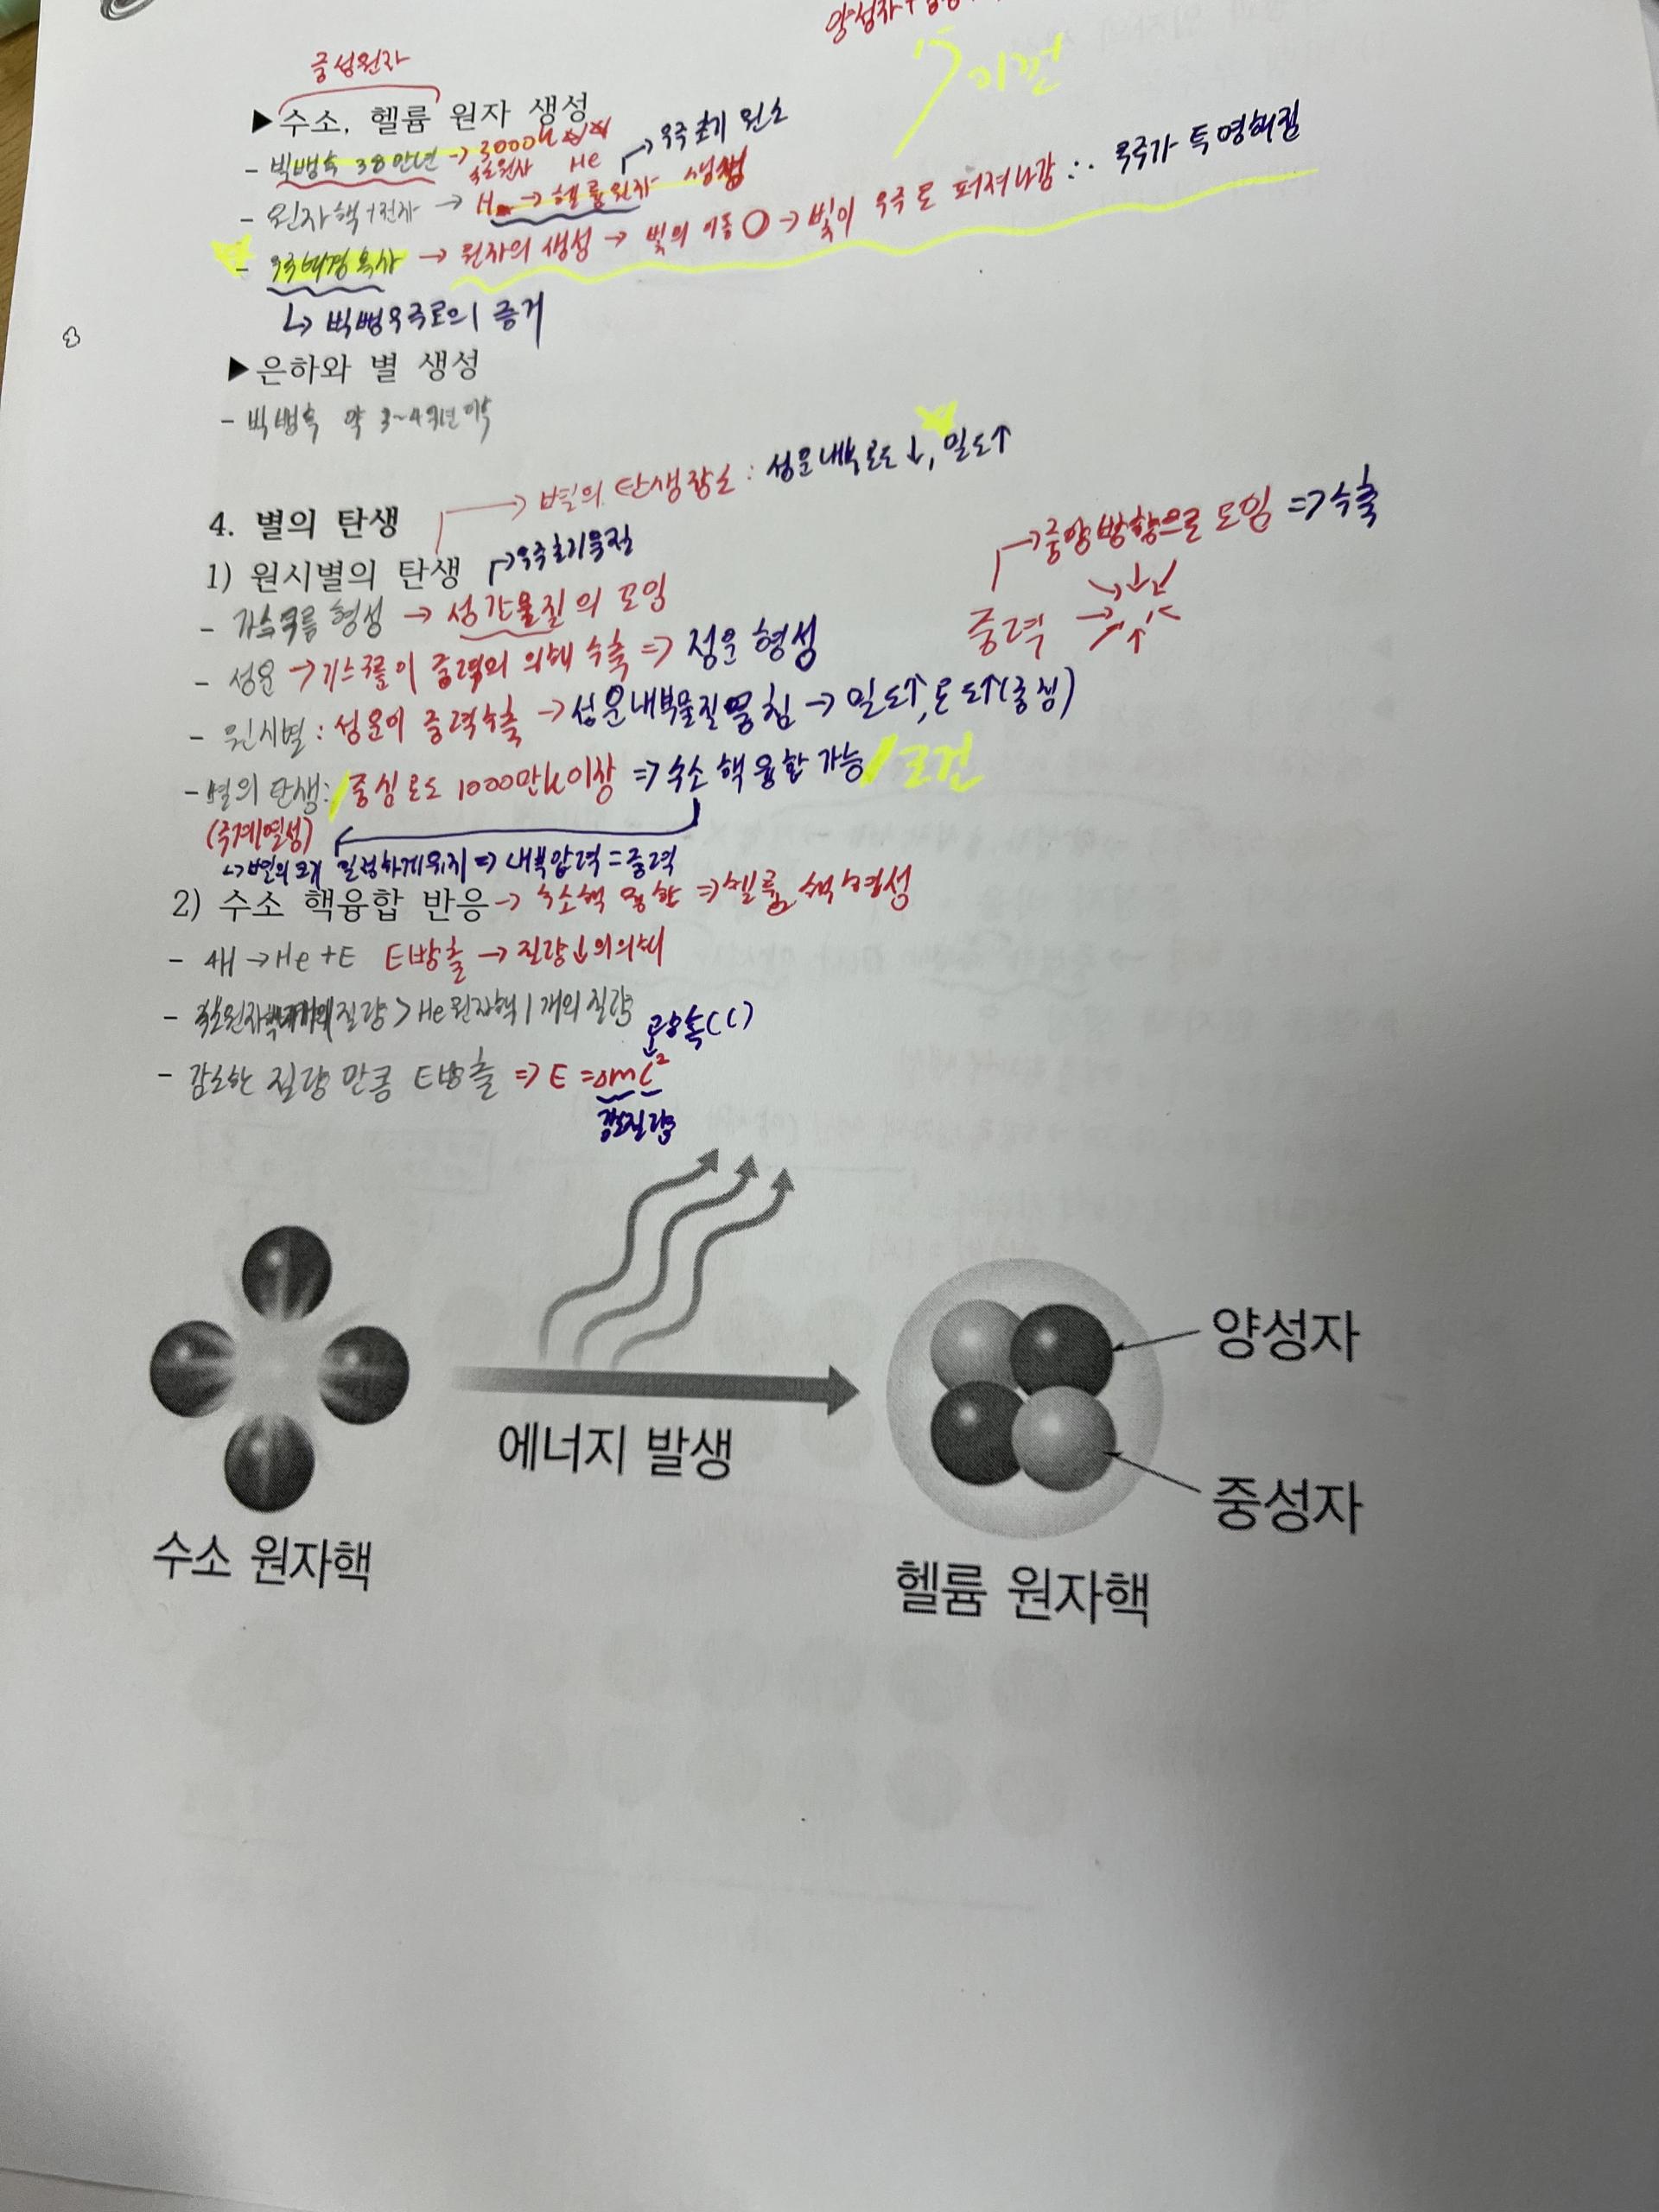 중성원자
▶수소, 헬륨 원자 생성
- 빅뱅후 38만년 → 3000K
수소원자 He → 우주 초기 원소
- 원자핵+전자 → H → 헬륨원자 생성
- 우주배경복사 → 원자의 생성 → 빛의 이동 O → 빛이 우주로 퍼져나감 ∴ 우주가 투명해짐
↳ 빅뱅우주론의 증거
▶은하와 별 생성
- 빅뱅후 약 3~4억년 이후
→ 별의 탄생장소 : 성운내부온도↓, 밀도↑
4. 별의 탄생
→중앙방향으로 모임 => 수축
1) 원시별의 탄생 →우주초기물질
중력
- 가스구름 형성 → 성간물질의 모임
- 성운 → 가스구름이 중력의 의해 수축 => 성운 형성
- 원시별 : 성운이 중력수축 → 성운내부물질뭉침 → 밀도↑, 온도↑(중심)
- 별의 탄생: 중심온도 1000만K이상 => 수소 핵융합 가능 / 조건
(주계열성)
↳별의 크기 일정하게유지 => 내부압력 = 중력
2) 수소 핵융합 반응 → 수소핵 융합 => 헬륨 핵 형성
- 4H → He + E E방출 → 질량↓의의해
- 수소원자핵4개의질량 > He원자핵 1개의 질량
광속(C)
- 감소한 질량 만큼 E방출 => E = △mC²
감소질량
양성자
에너지 발생
중성자
수소 원자핵
헬륨 원자핵